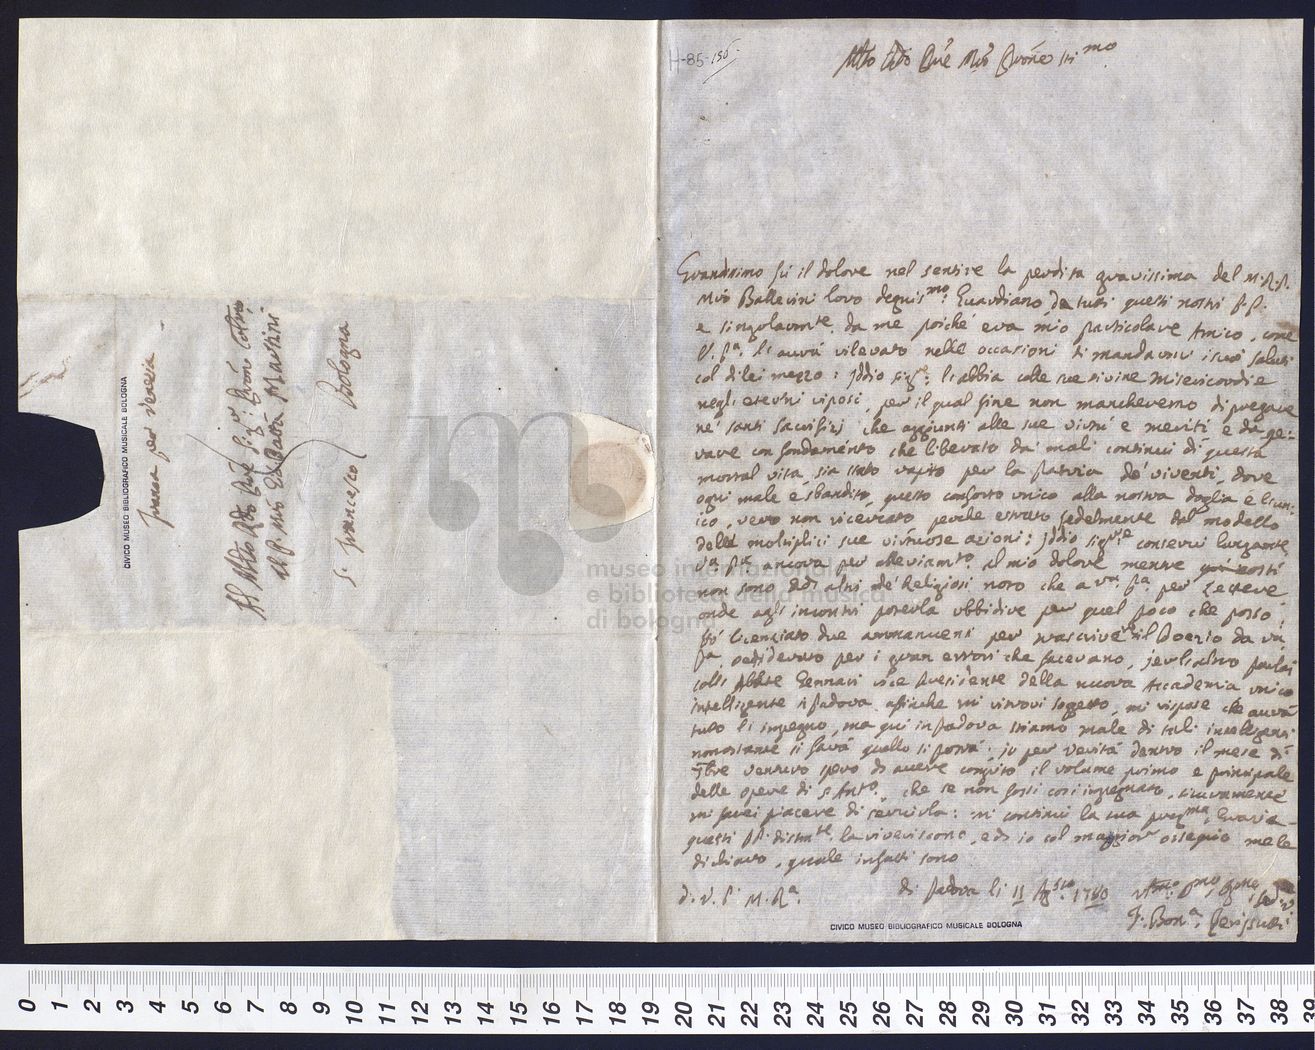 H-85-156
Mto Rdo Pre Mro Prone Stimo
Grandissimo fù il dolore nel sentire la perdita gravissima del M.R.P.
Mro Ballerini loro degnismo: Guardiano, da tutti questi nostri P.P.
e singolarmte da me poiché era mio particolare Amico, come
V. Pa. li avrà rilevato nelle occasioni di mandarvi i suoi saluti
col di lei mezzo: Iddio sigre: l'abbia colle sue divine misericordie
negli eterni riposi, per il qual fine non mancheremo di pregare
ne' santi sacrifizj che aggiunti alle sue virtù e meriti è da spe-
rare con fondamento che liberato da' mali continui di questa
mortal vita, sia stato rapito per la Patria de' viventi, dove
ogni male è sbandito, questo conforto unico alla nostra doglia è
non ricercato perche estrato fedelmente dal modello
delle molteplici sue virtuose azioni: Iddio sigre conservi lungamte
Va. Pta ancora per alleviamto al mio dolore mentre
non sono altri de' Religiosi noto che a Vra. Pa. per Lettere
onde agli incontri poterla ubbidire per quel poco che posso,
Hò licenziato due ammanuensi per trascrivere il Boezio da V.
Pa. desiderato per i gran errori che facevano, jeri l'altro parlai
coll' Abbate Gennari vice Presidente della nuova Accademia unico
intelligente in Padova affinche mi ritrovi sogetto, mi rispose che avrà
tutto l'impegno, ma qui in Padova stiamo male di tali intelligenti
nonostante si farà quello si potrà: io per verità dentro il mese di
7bre venturo spero di avere compito il volume primo e principale
delle opere di S. Anto. che se non fossi così impegnato, sicuramente
mi farei piacere di servirla: mi continui la sua pregma. Grazia
questi PP. distinte. la riveriscono, ed io col maggior ossequio me le
dichiaro, quale infatti sono
D. V. P. M. Ra.
di Padova li 11 Agsto. 1780
F. Bona. Perissuti
CIVICO MUSEO BIBLIOGRAFICO MUSICALE BOLOGNA
CIVICO MUSEO BIBLIOGRAFICO MUSICALE BOLOGNA
franca per Venezia
Al Mto Rdo Pre Sigr Pron
il P. Mro Gio Batta Martini
S. Francesco Bologna
museo internazionale
e biblioteca della musica
di bologna
0 1 2 3 4 5 6 7 8 9 10 11 12 13 14 15 16 17 18 19 20 21 22 23 24 25 26 27 28 29 30 31 32 33 34 35 36 37 38 39